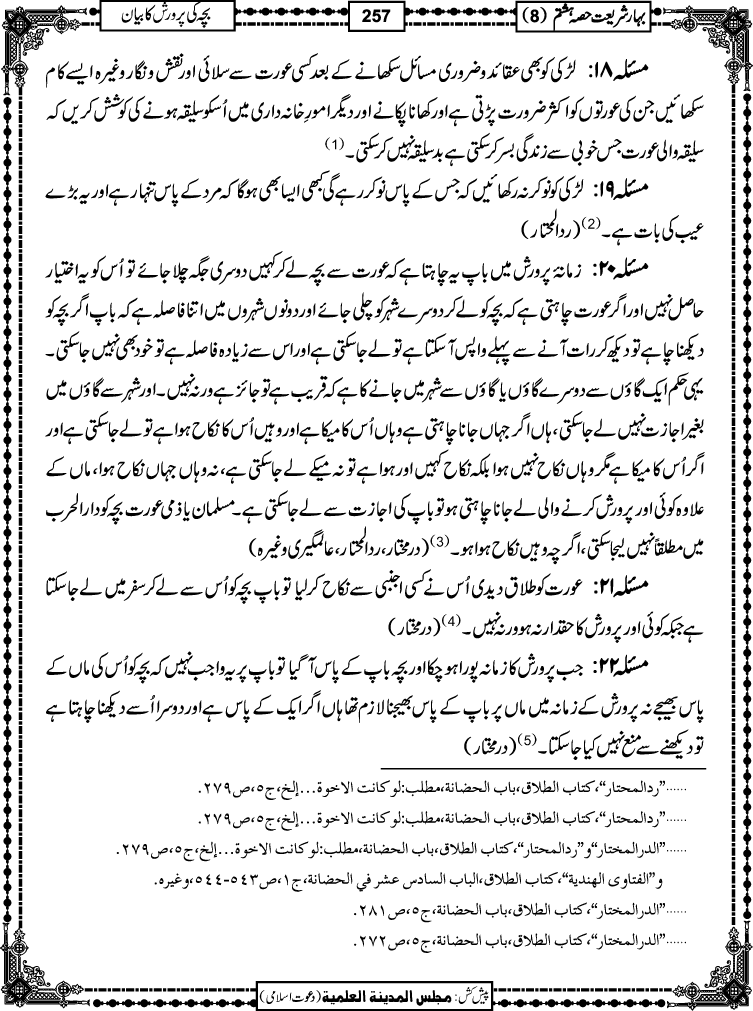 بہارِ شریعت حصہ ہشتم (8)
257
بچہ کی پرورش کا بیان
مسئلہ ۱۸: لڑکی کو بھی عقائد و ضروری مسائل سکھانے کے بعد کسی عورت سے سلائی اور نقش و نگار وغیرہ ایسے کام
سکھائیں جن کی عورتوں کو اکثر ضرورت پڑتی ہے اور کھانا پکانے اور دیگر امورِ خانہ داری میں اُسکو سلیقہ ہونے کی کوشش کریں کہ
سلیقہ والی عورت جس خوبی سے زندگی بسر کرسکتی ہے بدسلیقہ نہیں کرسکتی۔(1)
مسئلہ ۱۹: لڑکی کو نوکر نہ رکھائیں کہ جس کے پاس نوکر رہے گی کبھی ایسا بھی ہوگا کہ مرد کے پاس تنہا رہے اور یہ بڑے
عیب کی بات ہے۔(2) (ردالمحتار)
مسئلہ ۲۰: زمانۂ پرورش میں باپ یہ چاہتا ہے کہ عورت سے بچہ لے کر کہیں دوسری جگہ چلا جائے تو اُس کو یہ اختیار
حاصل نہیں اور اگر عورت چاہتی ہے کہ بچہ کو لے کر دوسرے شہر کو چلی جائے اور دونوں شہروں میں اتنا فاصلہ ہے کہ باپ اگر بچہ کو
دیکھنا چاہے تو دیکھ کر رات آنے سے پہلے واپس آسکتا ہے تو لے جاسکتی ہے اور اس سے زیادہ فاصلہ ہے تو خود بھی نہیں جاسکتی۔
یہی حکم ایک گاؤں سے دوسرے گاؤں یا گاؤں سے شہر میں جانے کا ہے کہ قریب ہے تو جائز ہے ورنہ نہیں۔ اور شہر سے گاؤں میں
بغیر اجازت نہیں لے جاسکتی، ہاں اگر جہاں جانا چاہتی ہے وہاں اُس کا میکا ہے اور وہیں اُس کا نکاح ہوا ہے تو لے جاسکتی ہے اور
اگر اُس کا میکا ہے مگر وہاں نکاح نہیں ہوا بلکہ نکاح کہیں اور ہوا ہے تو نہ میکے لے جاسکتی ہے، نہ وہاں جہاں نکاح ہوا، ماں کے
علاوہ کوئی اور پرورش کرنے والی لے جانا چاہتی ہو تو باپ کی اجازت سے لے جاسکتی ہے۔ مسلمان یا ذمی عورت بچہ کو دارالحرب
میں مطلقاً نہیں لیجاسکتی، اگرچہ وہیں نکاح ہوا ہو۔(3) (درمختار، ردالمحتار، عالمگیری وغیرہ)
مسئلہ ۲۱: عورت کو طلاق دیدی اُس نے کسی اجنبی سے نکاح کرلیا تو باپ بچہ کو اُس سے لے کر سفر میں لے جاسکتا
ہے جبکہ کوئی اور پرورش کا حقدار نہ ہو ورنہ نہیں۔(4) (درمختار)
مسئلہ ۲۲: جب پرورش کا زمانہ پورا ہوچکا اور بچہ باپ کے پاس آگیا تو باپ پر یہ واجب نہیں کہ بچہ کو اُس کی ماں کے
پاس بھیجے نہ پرورش کے زمانہ میں ماں پر باپ کے پاس بھیجنا لازم تھا ہاں اگر ایک کے پاس ہے اور دوسرا اُسے دیکھنا چاہتا ہے
تو دیکھنے سے منع نہیں کیا جاسکتا۔(5) (درمختار)
......"ردالمحتار"، کتاب الطلاق، باب الحضانة، مطلب: لو کانت الاخوة... إلخ، ج۵، ص۲۷۹.
......"ردالمحتار"، کتاب الطلاق، باب الحضانة، مطلب: لو کانت الاخوة... إلخ، ج۵، ص۲۷۹.
......"الدرالمختار" و "ردالمحتار"، کتاب الطلاق، باب الحضانة، مطلب: لو کانت الاخوة... إلخ، ج۵، ص۲۷۹.
و "الفتاوی الھندیة"، کتاب الطلاق، الباب السادس عشر في الحضانة، ج۱، ص۵۴۳-۵۴۴، وغیرہ.
......"الدرالمختار"، کتاب الطلاق، باب الحضانة، ج۵، ص۲۸۱.
......"الدرالمختار"، کتاب الطلاق، باب الحضانة، ج۵، ص۲۷۲.
پیش کش: مجلس المدینة العلمیة (دعوتِ اسلامی)